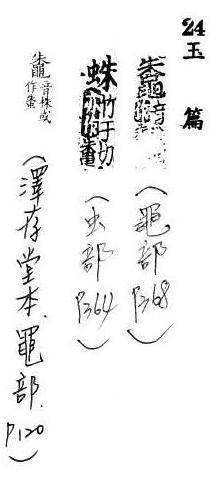 24 玉篇
鼄音 (黽部 P368)
蛛竹于切 (虫部 P364)
鼄音株或作 (澤存堂本.黽部. P120)